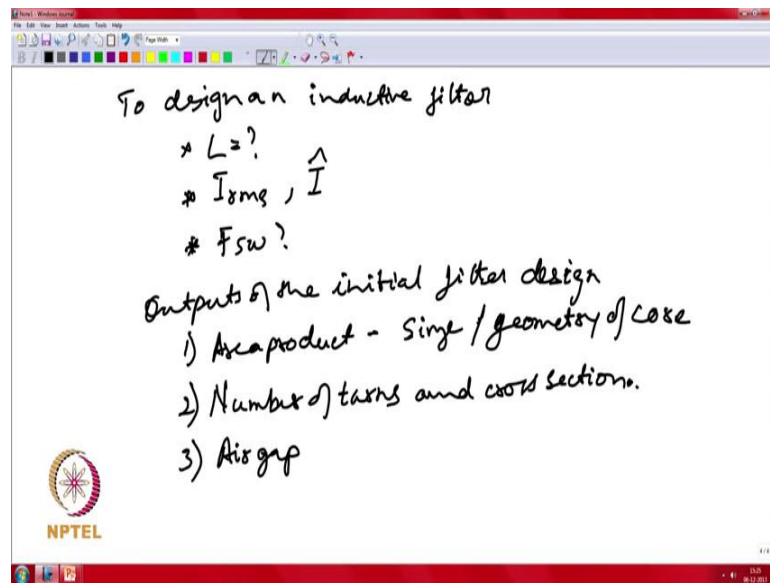 Note1 - Windows Journal
File Edit View Insert Actions Tools Help
Page Width
B I
To design an inductive filter
* L=?
* Irms, Î
* Fsw?
Outputs of the initial filter design
1) Area product - Singe / geometry of core
2) Number of turns and cross section.
3) Air gap
NPTEL
4/4
15:25
06-12-2017